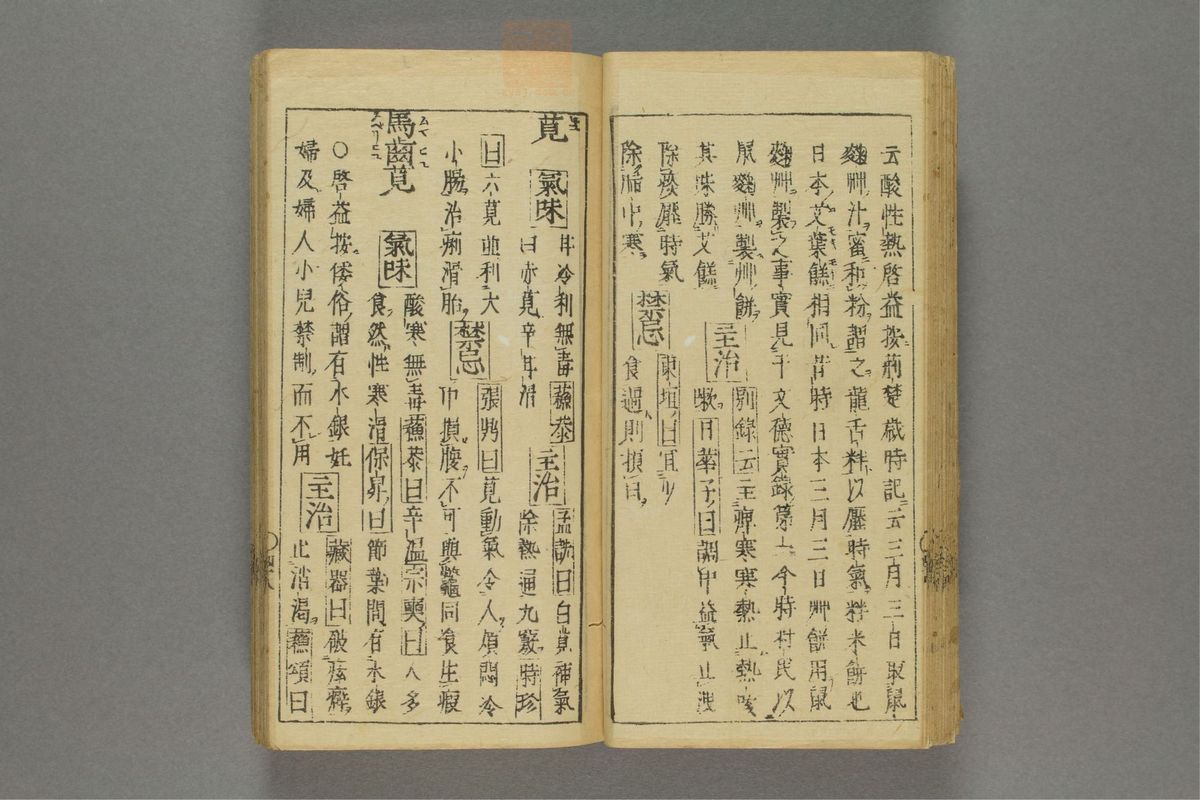 云酸性熱啓益按荊楚歳時記云三月三日取鼠
麴艸汁蜜和粉謂之龍舌䉽以厭時氣䉽米餅也
日本艾葉餻相同昔時日本三月三日艸餅用鼠
麴艸製之事實見于文德實錄第一今時村民以
鼠麴艸製艸餅 主治 別錄云主痹寒寒熱止熱咳
其味勝艾餻 嗽日華子曰調中益氣止洩
除痰厭時氣 東垣曰宜少
除脂中寒 禁忌 食過則損目
莧 氣味 甘冷利無毒蘇恭 主治 孟詵曰白莧補氣
曰赤莧辛甘滑 除熱通九竅時珍
曰六莧並利大 禁忌 張鼎曰莧動氣令人煩悶冷
小腸治痢滑胎 巾損腹不可與鼈同食生瘕
馬齒莧 氣味 酸寒無毒蘇恭曰辛溫宗奭曰人多
食然性寒滑保昇曰節葉間有水銀
〇啓益按倭俗謂有水銀妊 主治 藏器曰破痃癖
婦及婦人小兒禁制而不用 止消渴蘇頌曰